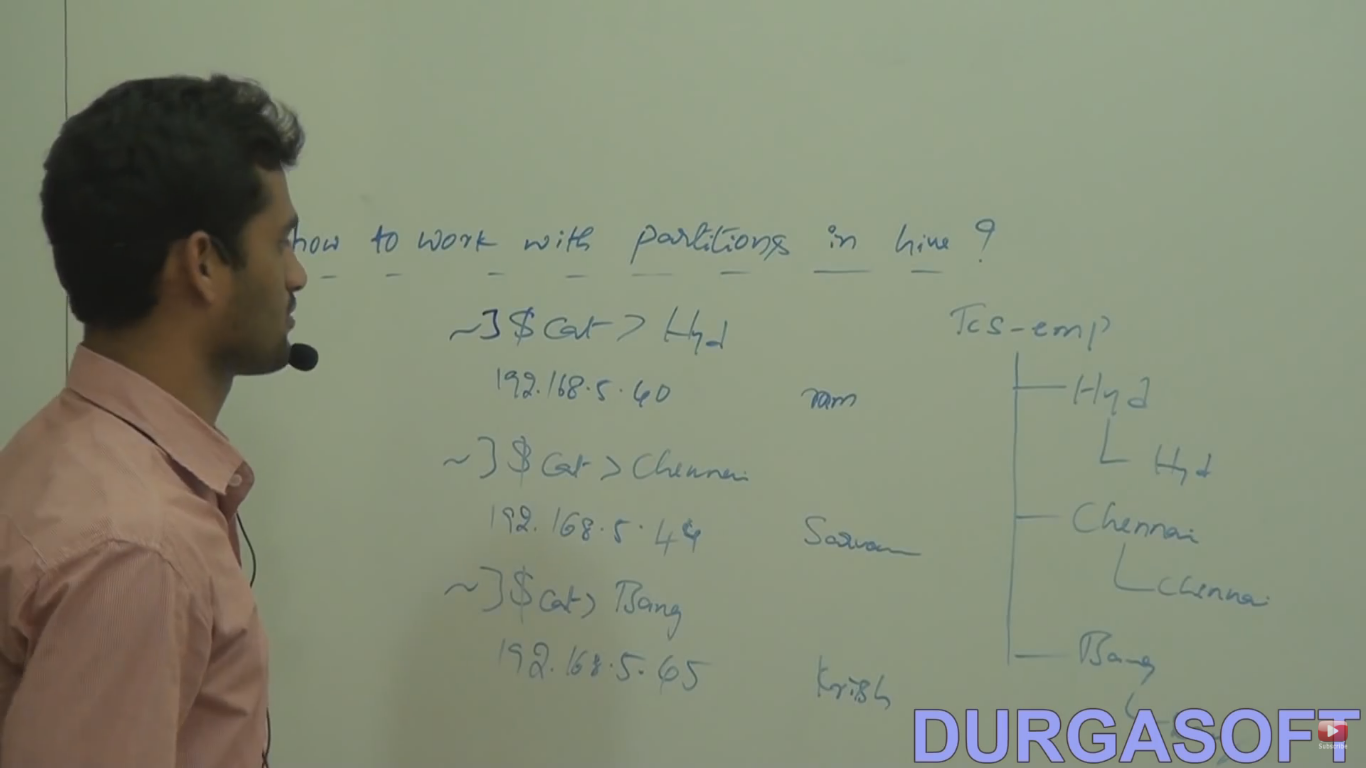 how to work with partitions in hive ?
~]$ cat > Hyd
192.168.5.40 ram
~]$ cat > Chennai
192.168.5.44
~]$ cat > Bang
192.168.5.65 Krish
Tcs-emp
Hyd
Hyd
Chennai
Chennai
Bang
DURGASOFT
Subscribe